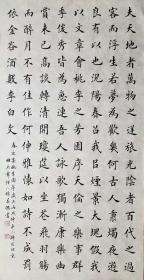 夫天地者萬物之逆旅光陰者百代之過
客而浮生若夢為歡幾何古人秉燭夜遊
良有以也況陽春召我以煙景大塊假我
以文章會桃李之芳園序天倫之樂事群
季俊秀皆為惠連吾人詠歌獨慚康樂幽
賞未已高談轉清開瓊筵以坐花飛羽觴
而醉月不有佳作何伸雅懷如詩不成罰
依金谷酒數 李白文